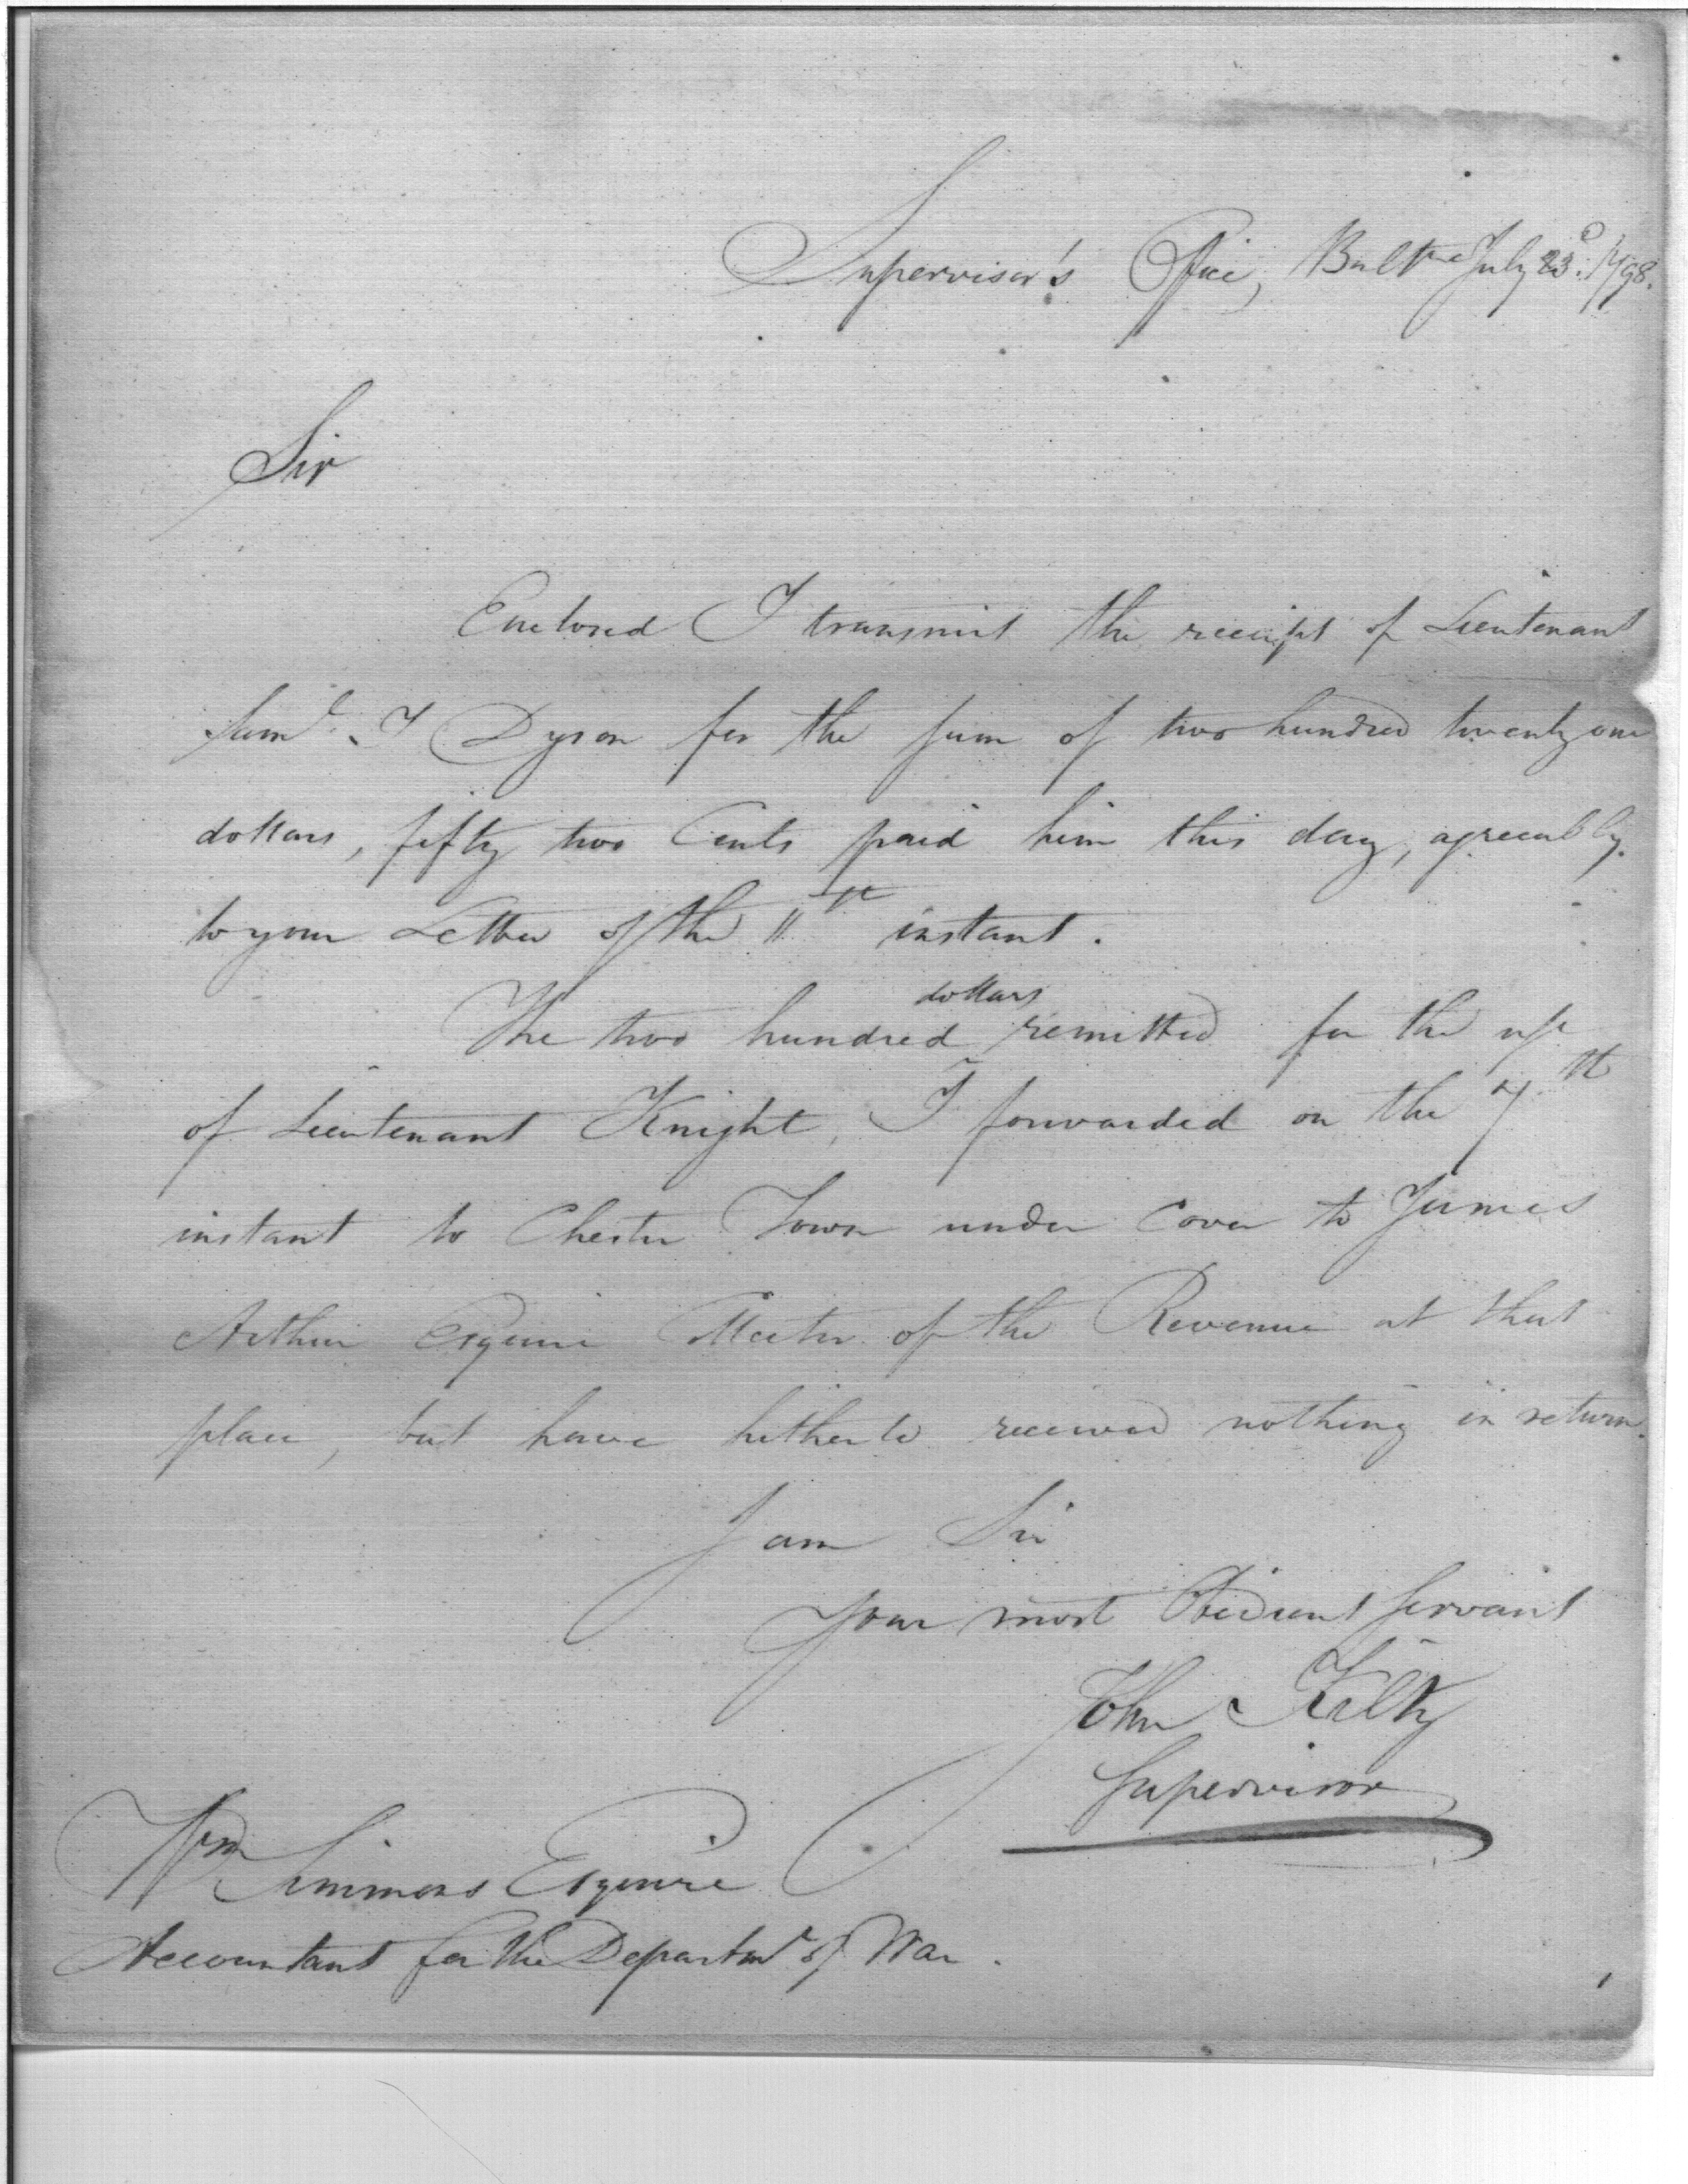 Supervisor's Office, Baltre July 23d. 1798.
Sir
Enclosed I transmit the receipt of Lieutenant
Saml. T Dyson for the sum of two hundred twenty one
dollars, fifty two Cents paid him this day, agreeably
to your Letter of the 11th instant.
dollars
The two hundred remitted for the use
of Lieutenant Knight, I forwarded on the 7th
instant to Chester Town under Cover to James
Arthur Esquire Collector of the Revenue at that
place, but have hitherto received nothing in return.
I am Sir
Your most Obedient Servant
John Kilty
Supervisor
Wm Simmons Esquire
Accountant for the Departmt of War.